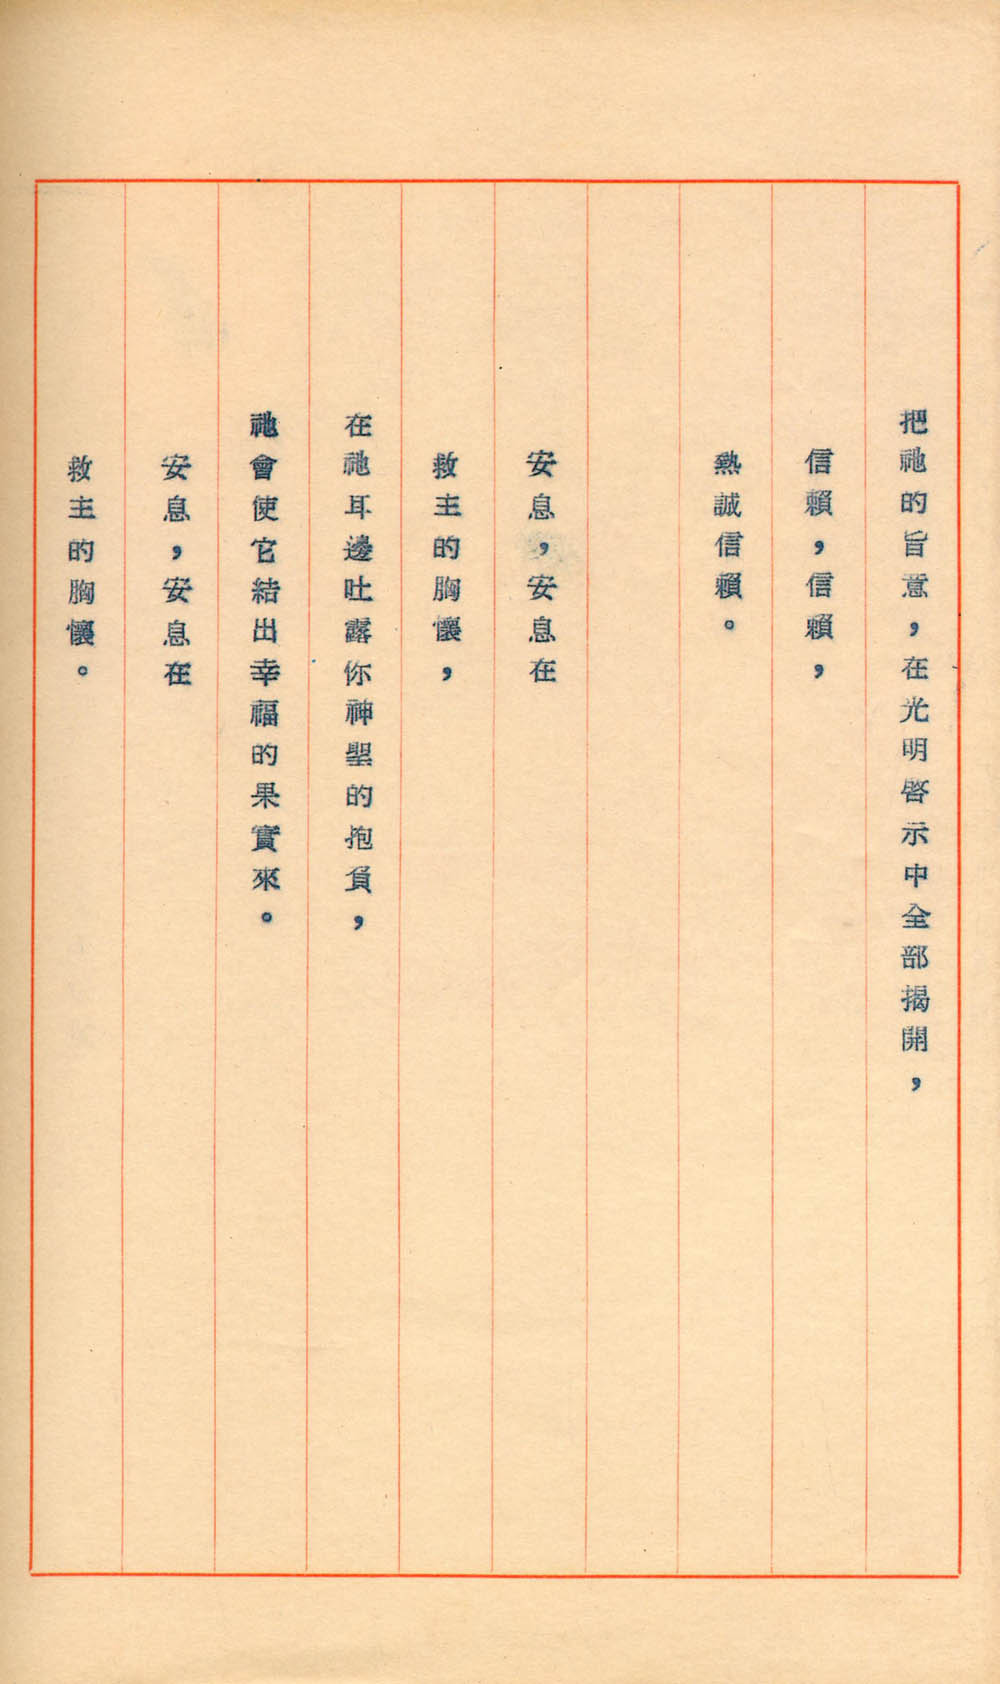 把祂的旨意，在光明啓示中全部揭開，
信賴，信賴，
熱誠信賴。
安息，安息在
救主的胸懷，
在祂耳邊吐露你神聖的抱負，
祂會使它結出幸福的果實來。
安息，安息在
救主的胸懷。